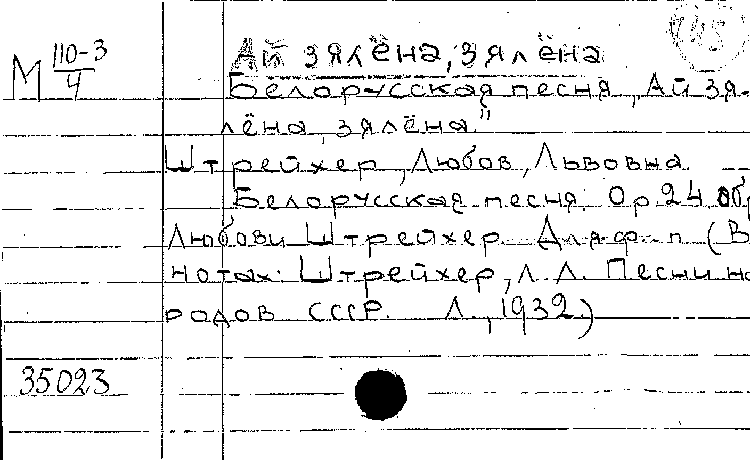 М 110-3/4
Ай зялёна, зялёна
Белорусская песня „Ай зя-
лёна, зялёна"
Штрейхер, Любов, Львовна
Белорусская песня. Ор 24 обр
Любови Штрейхер. Для ф-п (В
нотах: Штрейхер, Л. Л. Песни на
родов СССР. Л., 1932.)
35023